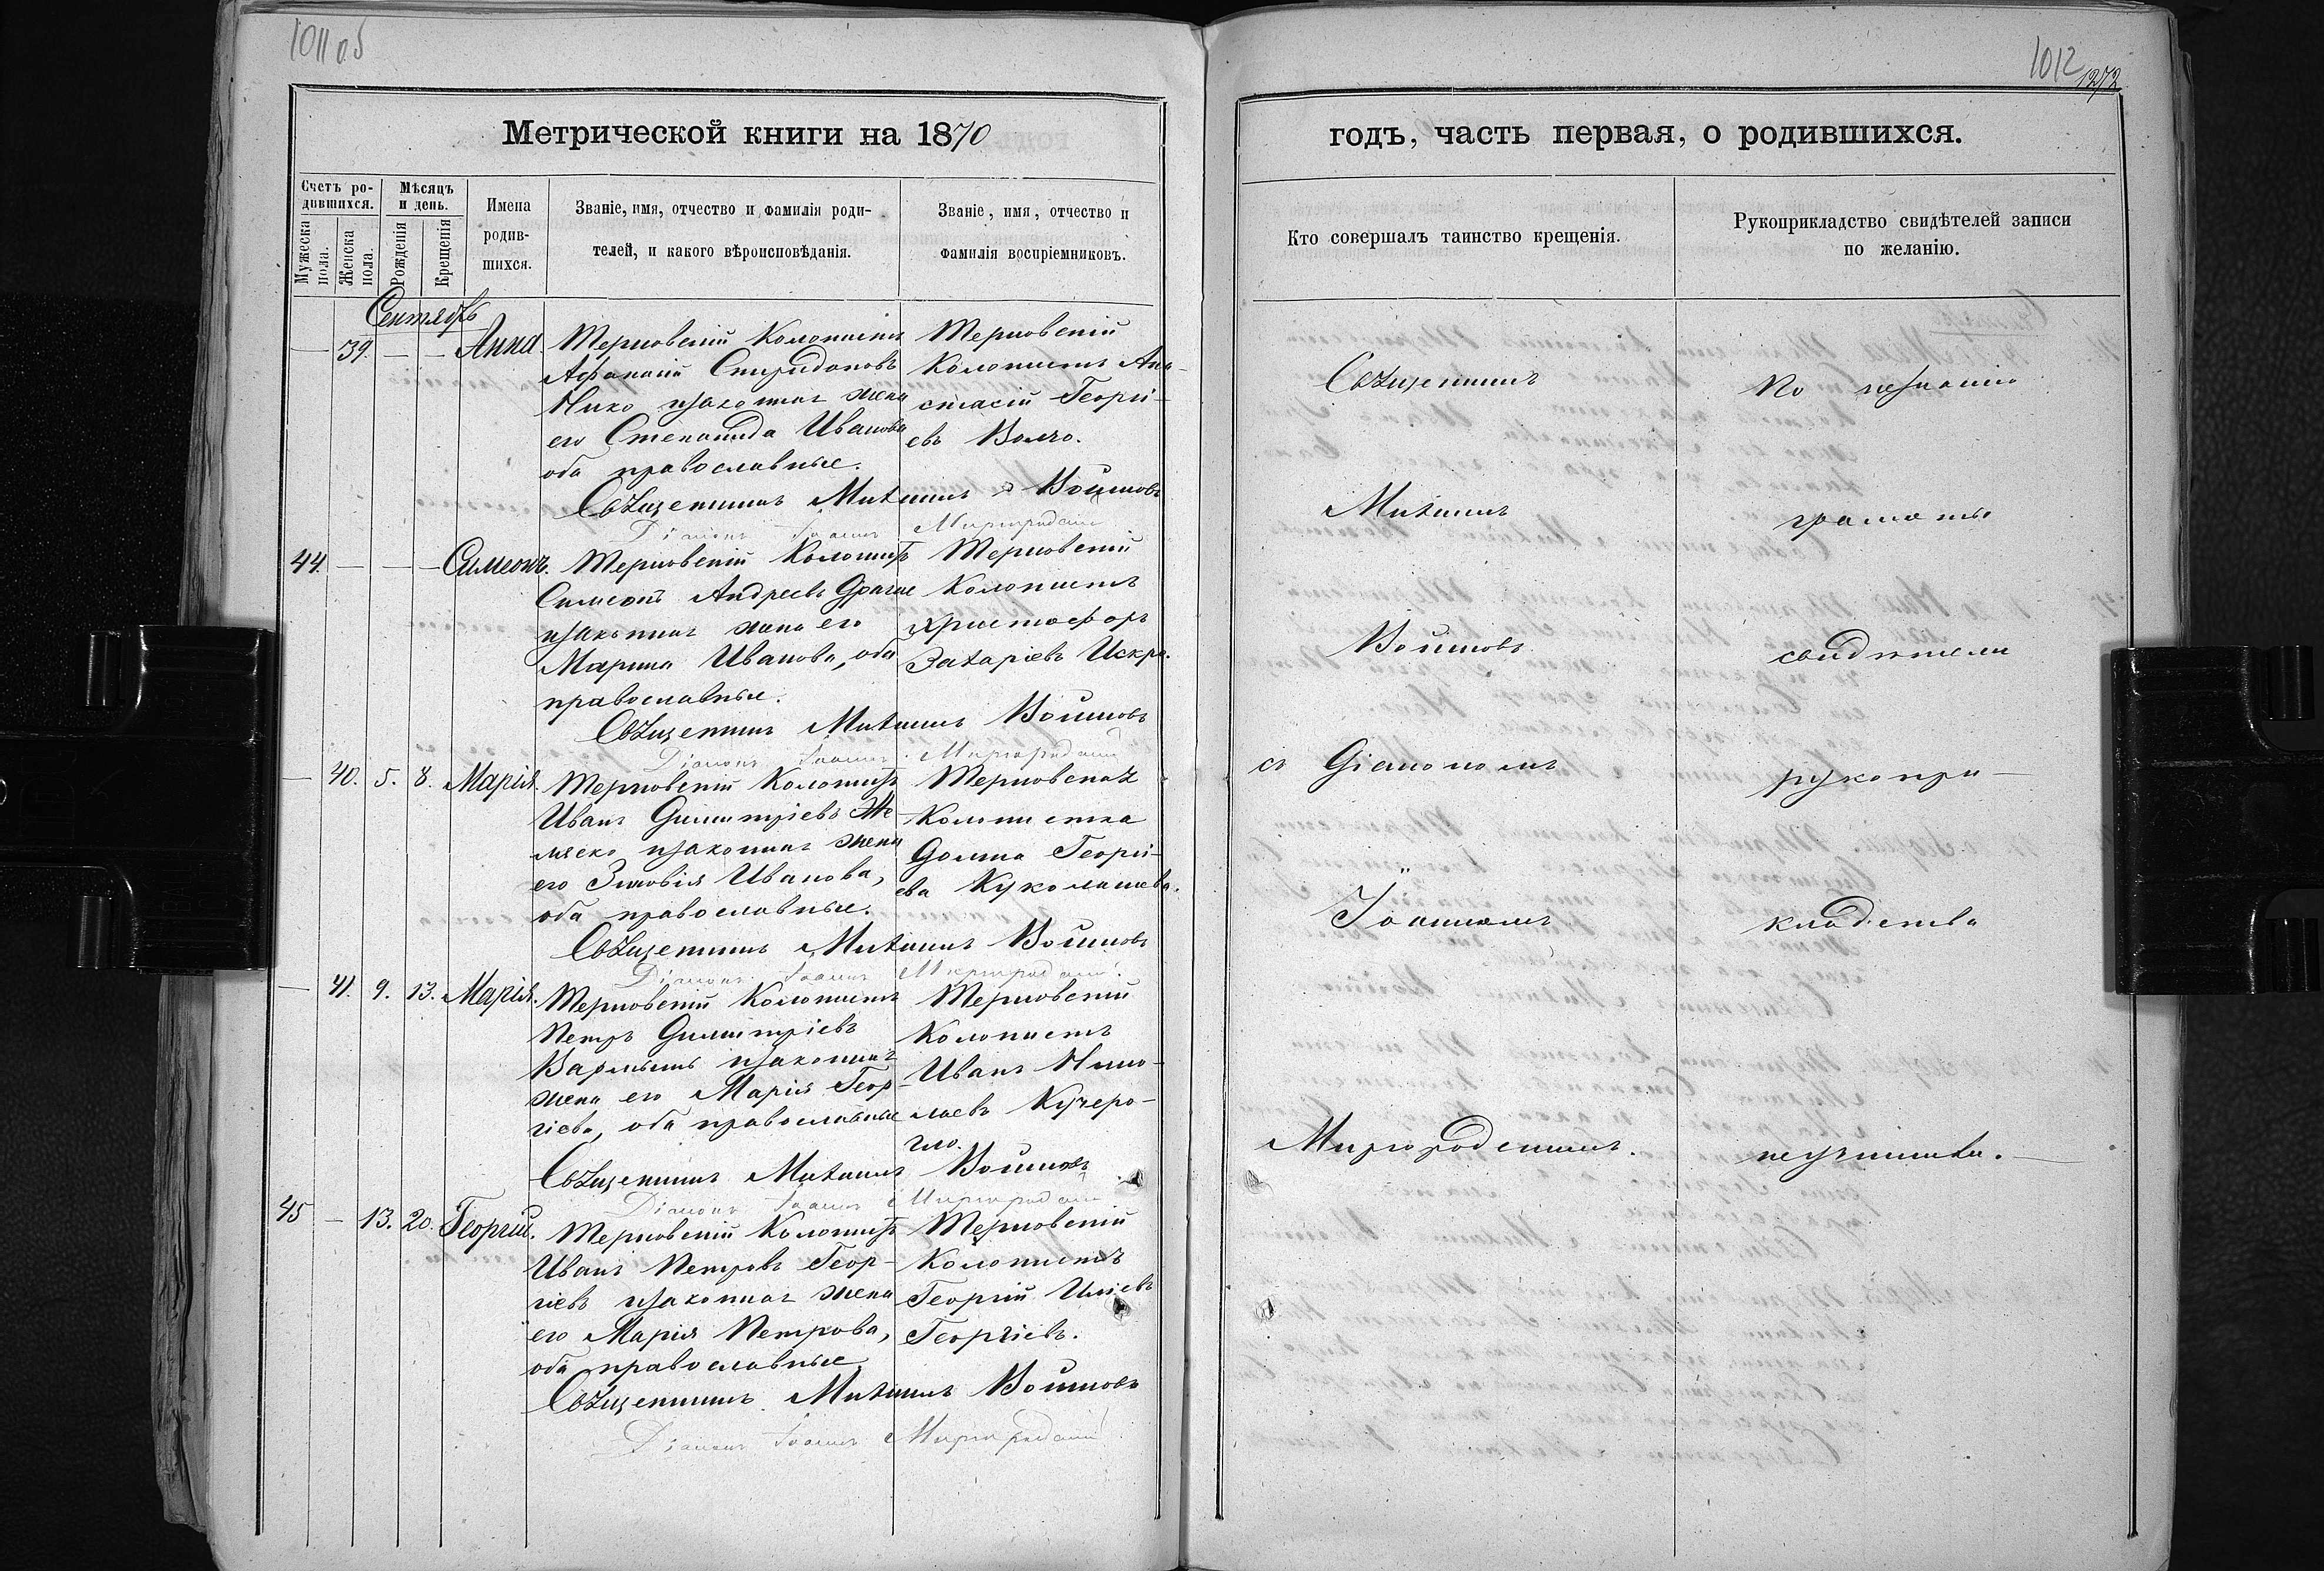 1011 об
1012
1272
Метрической книги на 1870
годъ, часть первая, о родившихся.
Счетъ родившихся.
Мужеска пола.
Женска пола.
Мѣсяцъ и день.
Рожденія
Крещенія
Имена родившихся.
Званіе, имя, отчество и фамилія родителей, и какого вѣроисповѣданія.
Званіе, имя, отчество и фамилія воспріемниковъ.
Кто совершалъ таинство крещенія.
Рукоприкладство свидѣтелей записи по желанію.
Сентябрь
— 39. — — Анна.
Терновскій Колонистъ
Афанасій Спиридоновъ
Нико и законная жена
его Степанида Иванова
оба православные.
Терновскій
Колонистъ Ана-
стасій Георгі-
евъ Волчо.
Священникъ Михаилъ Войновъ
Діаконъ Іоаннъ Миргородскій
44. — — — Симеонъ.
Терновскій Колонистъ
Симеонъ Андреевъ Драгне
и законная жена его
Марина Иванова, оба
православные.
Терновскій
Колонистъ
Христофоръ
Захаріевъ Искра.
Священникъ Михаилъ Войновъ
Діаконъ Іоаннъ Миргородскій
— 40. 5. 8. Марія.
Терновскій Колонистъ
Иванъ Димитріевъ Же-
ляско и законная жена
его Зиновія Иванова,
оба православные.
Терновская
Колонистка
Домна Георгі-
ева Куколашева.
Священникъ Михаилъ Войновъ
Діаконъ Іоаннъ Миргородскій
— 41. 9. 13. Марія.
Терновскій Колонистъ
Петръ Димитріевъ
и законная
жена его Марія Геор-
гіева, оба православные
Терновскій
Колонистъ
Иванъ Нико-
лаевъ Кучеро-
гло.
Священникъ Михаилъ Войновъ
Діаконъ Іоаннъ Миргородскій
45 — 13. 20. Георгій.
Терновскій Колонистъ
Иванъ Петровъ Геор-
гіевъ и законная жена
его Марія Петрова,
оба православные
Терновскій
Колонистъ
Георгій Иліевъ
Георгіевъ.
Священникъ Михаилъ Войновъ
Діаконъ Іоаннъ Миргородскій
Священникъ
Михаилъ
Войновъ
съ Діакономъ
Іоанномъ
Миргородскимъ.
По незнанію
грамоты
свидѣтели
рукопри-
кладства
не учинили.